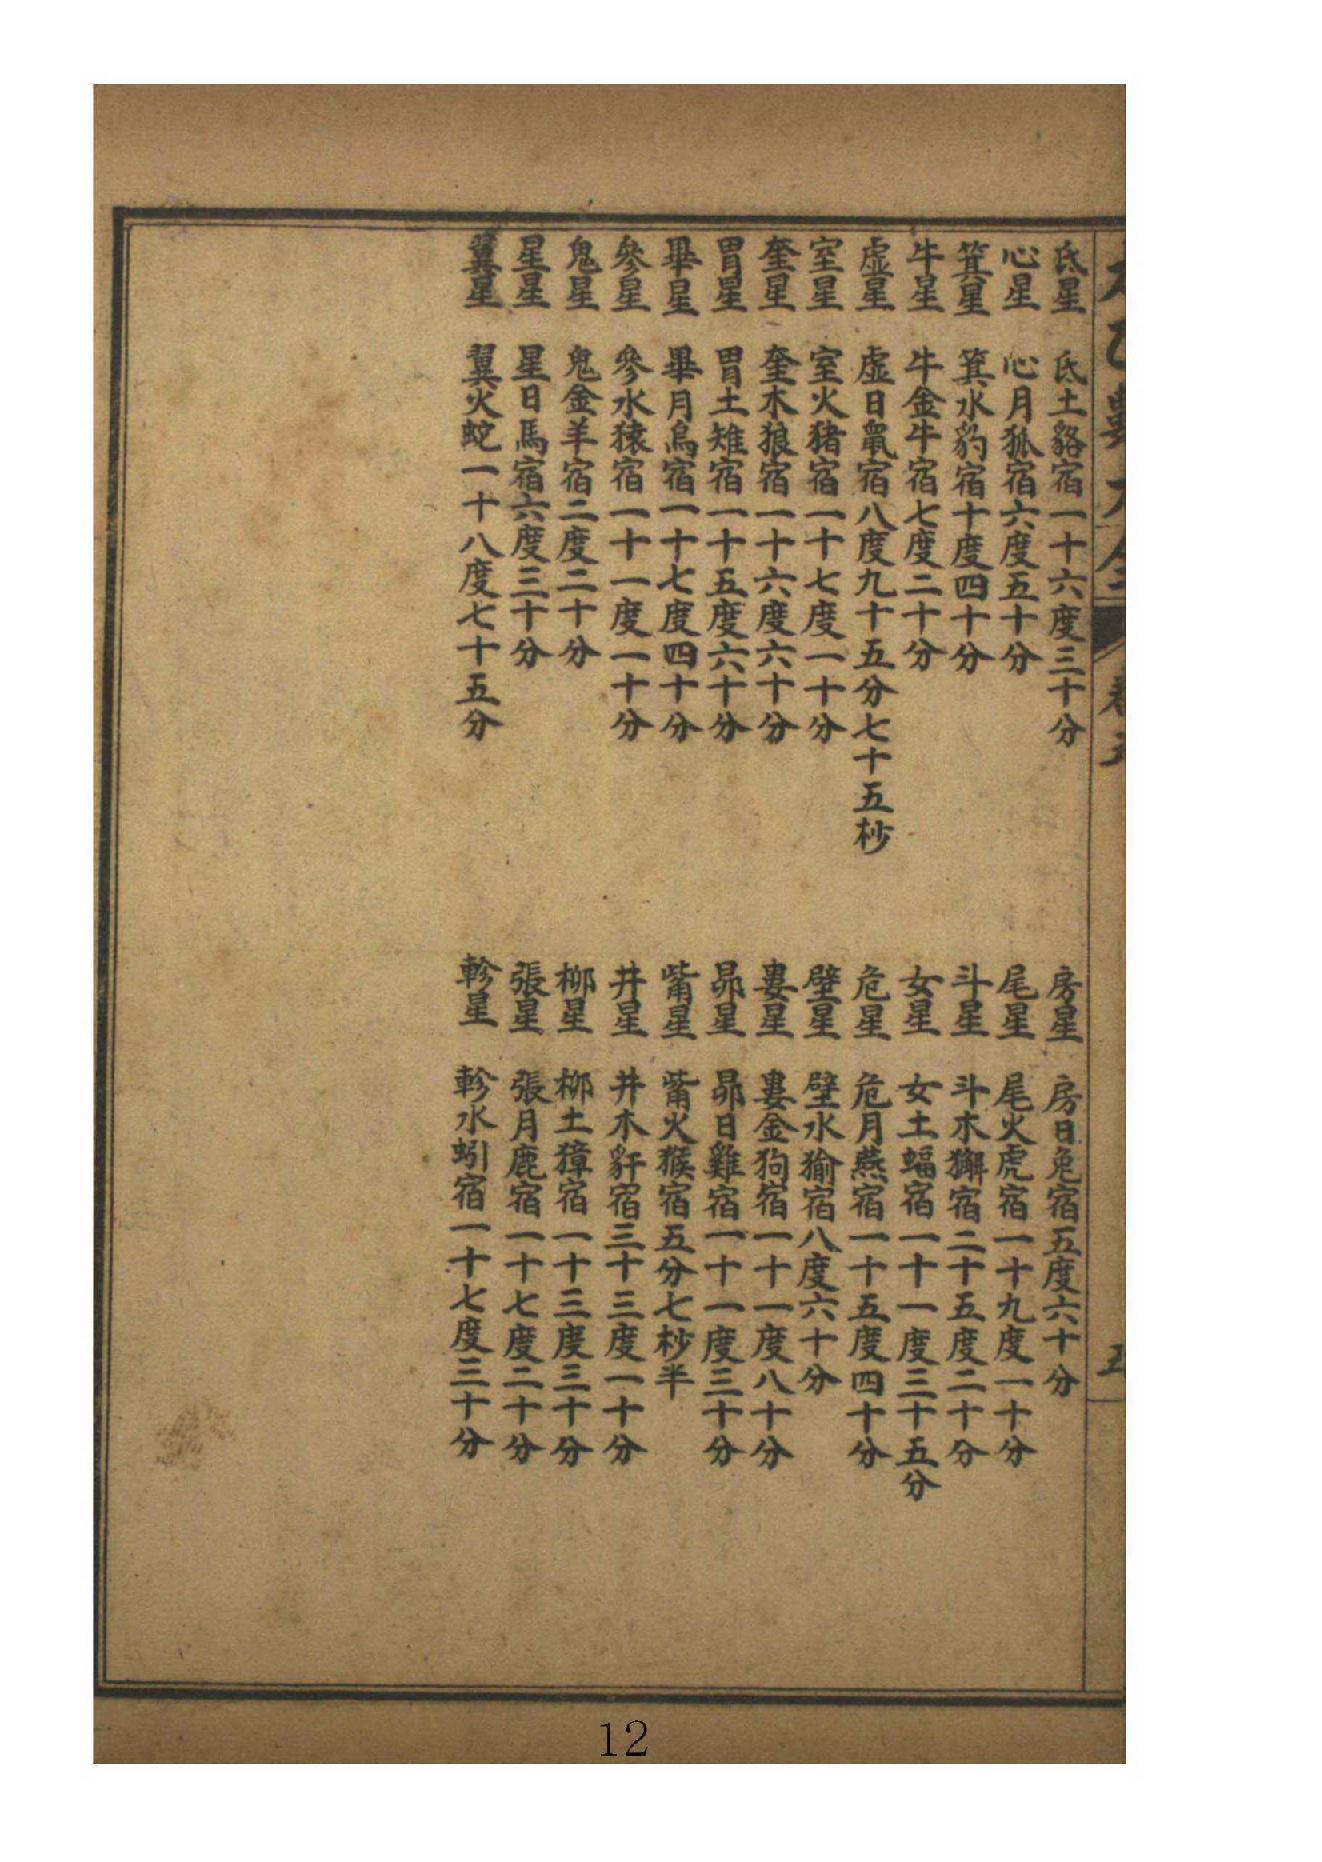 氐星　氐土貉宿一十六度三十分　房星　房日兔宿五度六十分
心星　心月狐宿六度五十分　尾星　尾火虎宿一十九度一十分
箕星　箕水豹宿十度四十分　斗星　斗木獬宿二十五度二十分
牛星　牛金牛宿七度二十分　女星　女土蝠宿一十一度三十五分
虛星　虛日鼠宿八度九十五分七十五杪　危星　危月燕宿一十五度四十分
室星　室火猪宿一十七度一十分　壁星　壁水㺄宿八度六十分
奎星　奎木狼宿一十六度六十分　婁星　婁金狗宿一十一度八十分
胃星　胃土雉宿一十五度六十分　昴星　昴日雞宿一十一度三十分
畢星　畢月烏宿一十七度四十分　觜星　觜火猴宿五分七杪半
參星　參水猿宿一十一度一十分　井星　井木犴宿三十三度一十分
鬼星　鬼金羊宿二度二十分　柳星　柳土獐宿一十三度三十分
星星　星日馬宿六度三十分　張星　張月鹿宿一十七度二十分
翼星　翼火蛇一十八度七十五分　軫星　軫水蚓宿一十七度三十分
12